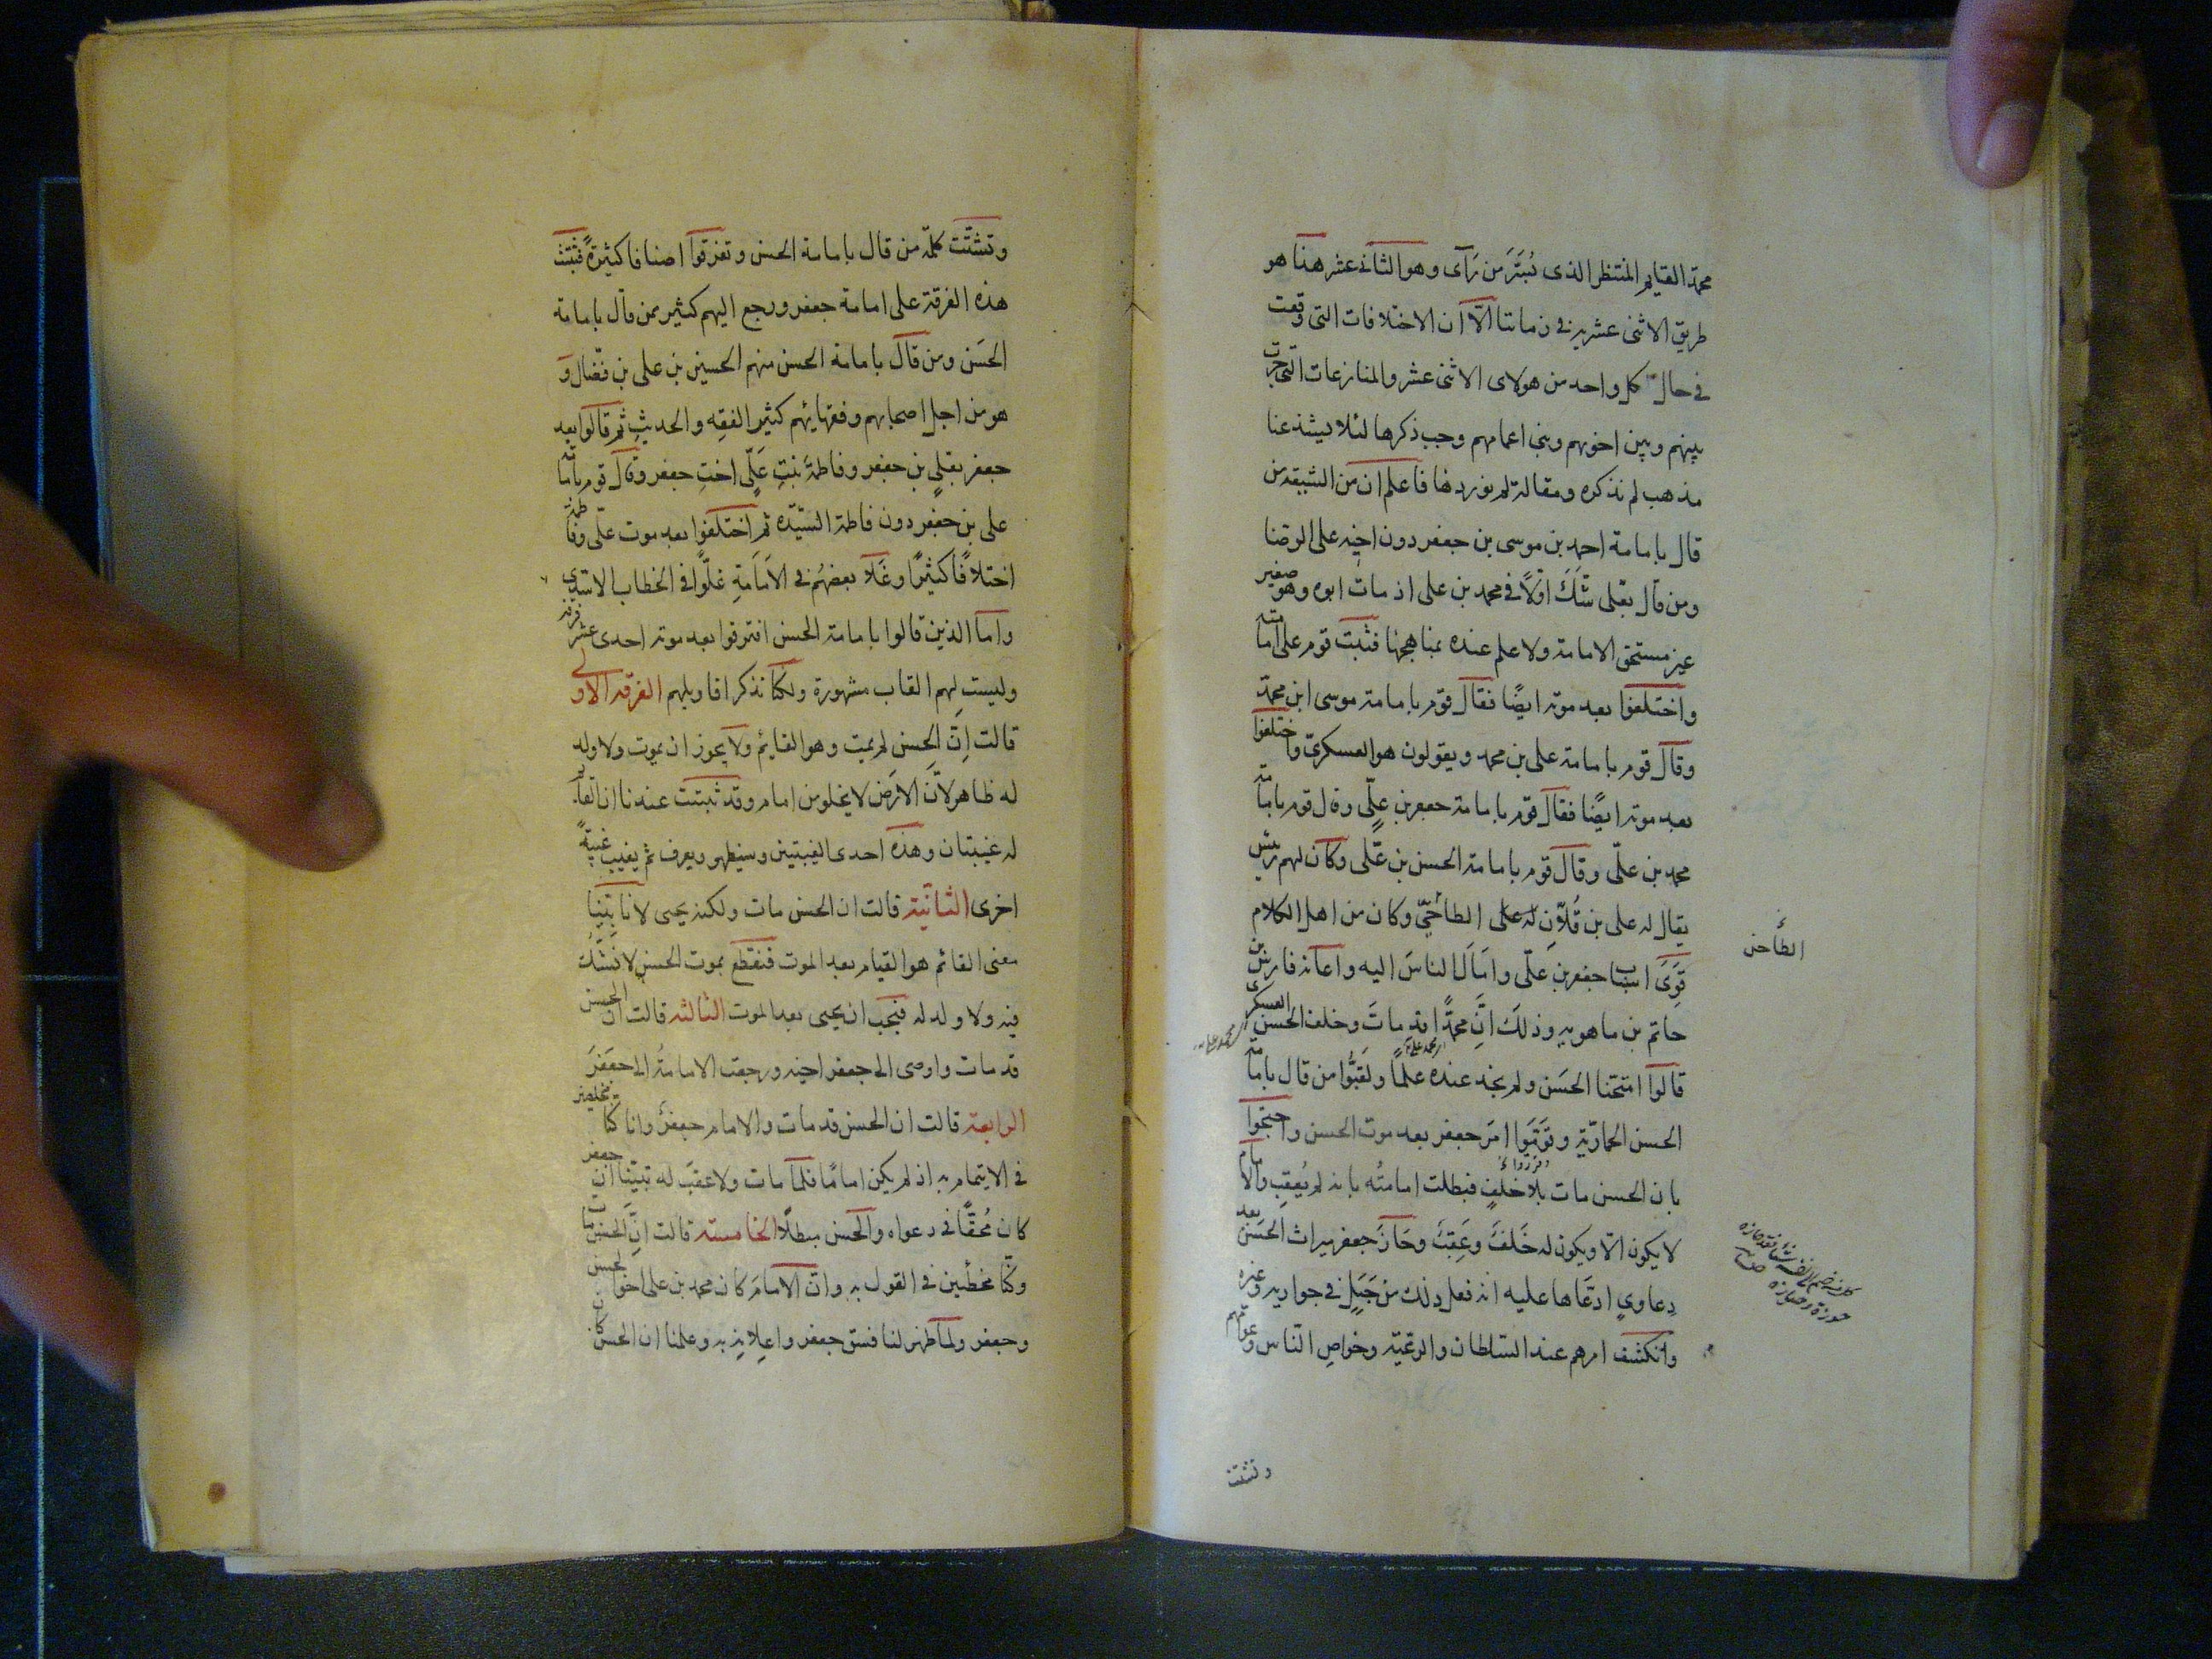 محمد القايم المنتظر الذى بسر من رآى وهو الثانى عشر هذا هو
طريق الاثنى عشرية فى زماننا الّا ان الاختلافات التى وقعت
فى حال كل واحد من هولاى الاثنى عشر والمنازعات التى جرت
بينهم وبين اخوتهم وبنى اعمامهم وجب ذكرها لئلا يشذ عنا
مذهب لم نذكره ومقالة لم نوردها فاعلم ان من الشيعة من
قال بامامة احمد بن موسى بن جعفر دون اخيه على الرضا
ومن قال بعلى شَكَ اوّلاً فى محمد بن على اذ مات ابوه وهو صغير
غير مستحق الامامة ولا علم عنده بمناهجها فثبت قوم على امامته
واختلفوا بعد موته ايضًا فقال قوم بامامة موسى ابن محمّد
وقال قوم بامامة على بن محمد ويقولون هو العسكرىّ واختلفوا
بعد موته ايضًا فقال قوم بامامة جعفر بن علىّ وقال قوم بامامة
محمد بن علىّ وقال قوم بامامة الحسن بن علّى وكان لهم رئيس
يقال له على بن فلان له على الطاحى وكان من اهل الكلام
الطاحن
قَوَّىَ اسباب جعفر بن علّى وامَالَ الناسَ اليه واعانه فارس بن
حاتم بن ماهويه وذلك انَّ محمّدًا قد ماتَ وخلف الحسن العسكرى
قالوا امتحنا الحسَن ولم نجد عنده علمًا ولقبُّوا من قال بامامة
الحسن الحمارّية وقوَّوا امرَ جعفر بعد موت الحسن واحتجوا
بان الحسن مات بلا خلفٍ فبطلت امامتُه بانه لم يُعقِب والامام
لا يكون الّا ويكون له خَلفٌ وعَقِبٌ وحَازَ جعفر ميراث الحَسَن بعد
دعاوىٍ ادعَّاها عليه انه فعل ذلك من حَبَلٍ فى جواريه وغيره
وانكشف امرهم عند السّلطان والرعيّة وخواصِ النّاس وعوامهم
وتشتت
وتشتّت كلمة من قال بامامة الحسن وتفرقوا اصنافا كثيرةً فثبتت
هذه الفرقة على امامة جعفر ورجع اليهم كثير ممن قال بامامة
الحسَن ومن قال بامامة الحسن منهم الحسين بن على بن فضّال و
هو من اجل اصحابهم وفقهايُهم كثير الفقِه والحديثِ ثم قالوا بعد
جعفر بعلىِ بن جعفر وفاطمةَ بنتِ عَلِّى اختِ جعفر وقال قوم بامامة
على بن جعفر دون فاطمة السّيّده ثم اختلفوا بعد موت علّى وفاطمة
اختلافًا كثيرًا وغَلا بعضهُم فى الامَامَةِ غلوًّا فى الخطاب الاسدى
واما الذين قالوا بامامة الحسن افترقوا بعد موته احدى عشر فرقة
وليست لهم القاب مشهورة ولكنّا نذكر اقاويلهم الفرقه الاولى
قالت انّ الحسن لم يمت وهو القايم ولا يجوز ان يموت ولا ولد
له ظاهر لانَّ الارضَ لا يخلو من امام وقد ثبتت عندنا ان القائم
له غيبتان وهذه احدى الغيبتين وسيظهر ويعرف ثم يغيب غيبةً
اخرى الثانية قالت ان الحسن مات ولكنه يحيى لانا بيّنا
معنى القائم هو القيام بعد الموت فنقطع بموت الحسن لا نشكّ
فيه ولا ولد له فيجب ان يحيى بعد الموت الثالثة قالت ان الحسن
قد مات واوصى الى جعفر اخيه ورجعت الامامةُ الى جعفَر
الرابعة قالت ان الحسن قد مات والامام جعفرٌ وانا كنّا مخطئين
فى الايتمام به اذ لم يكن امامًا فلما مات ولا عقبَ له تبيّنا ان جعفر
كان مُحقًّا فى دعواه والحسن مبطلًا الخامسة قالت انّ الحسن مات
وكنّا مخطئين فى القول به وانّ الامامَ كان محمد بن على اخوا لحسن
وجعفر ولما ظهر لنا فسق جعفر واعلانه به وعلمنا ان الحسن كان